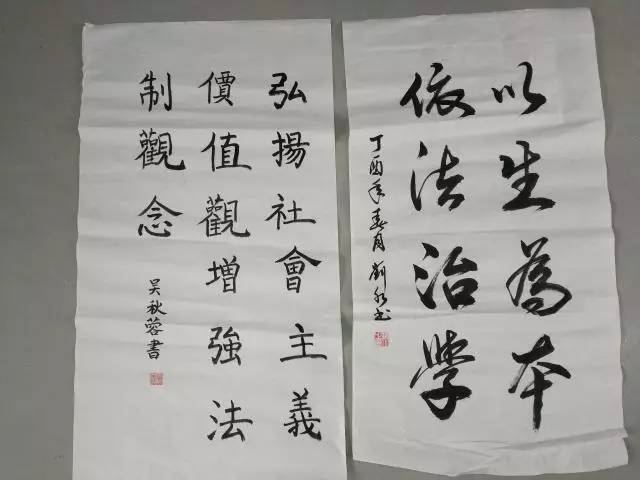 以生為本
依法治學
丁酉年春月劉
弘揚社會主義
價值觀增強法
制觀念
吴秋蓉書